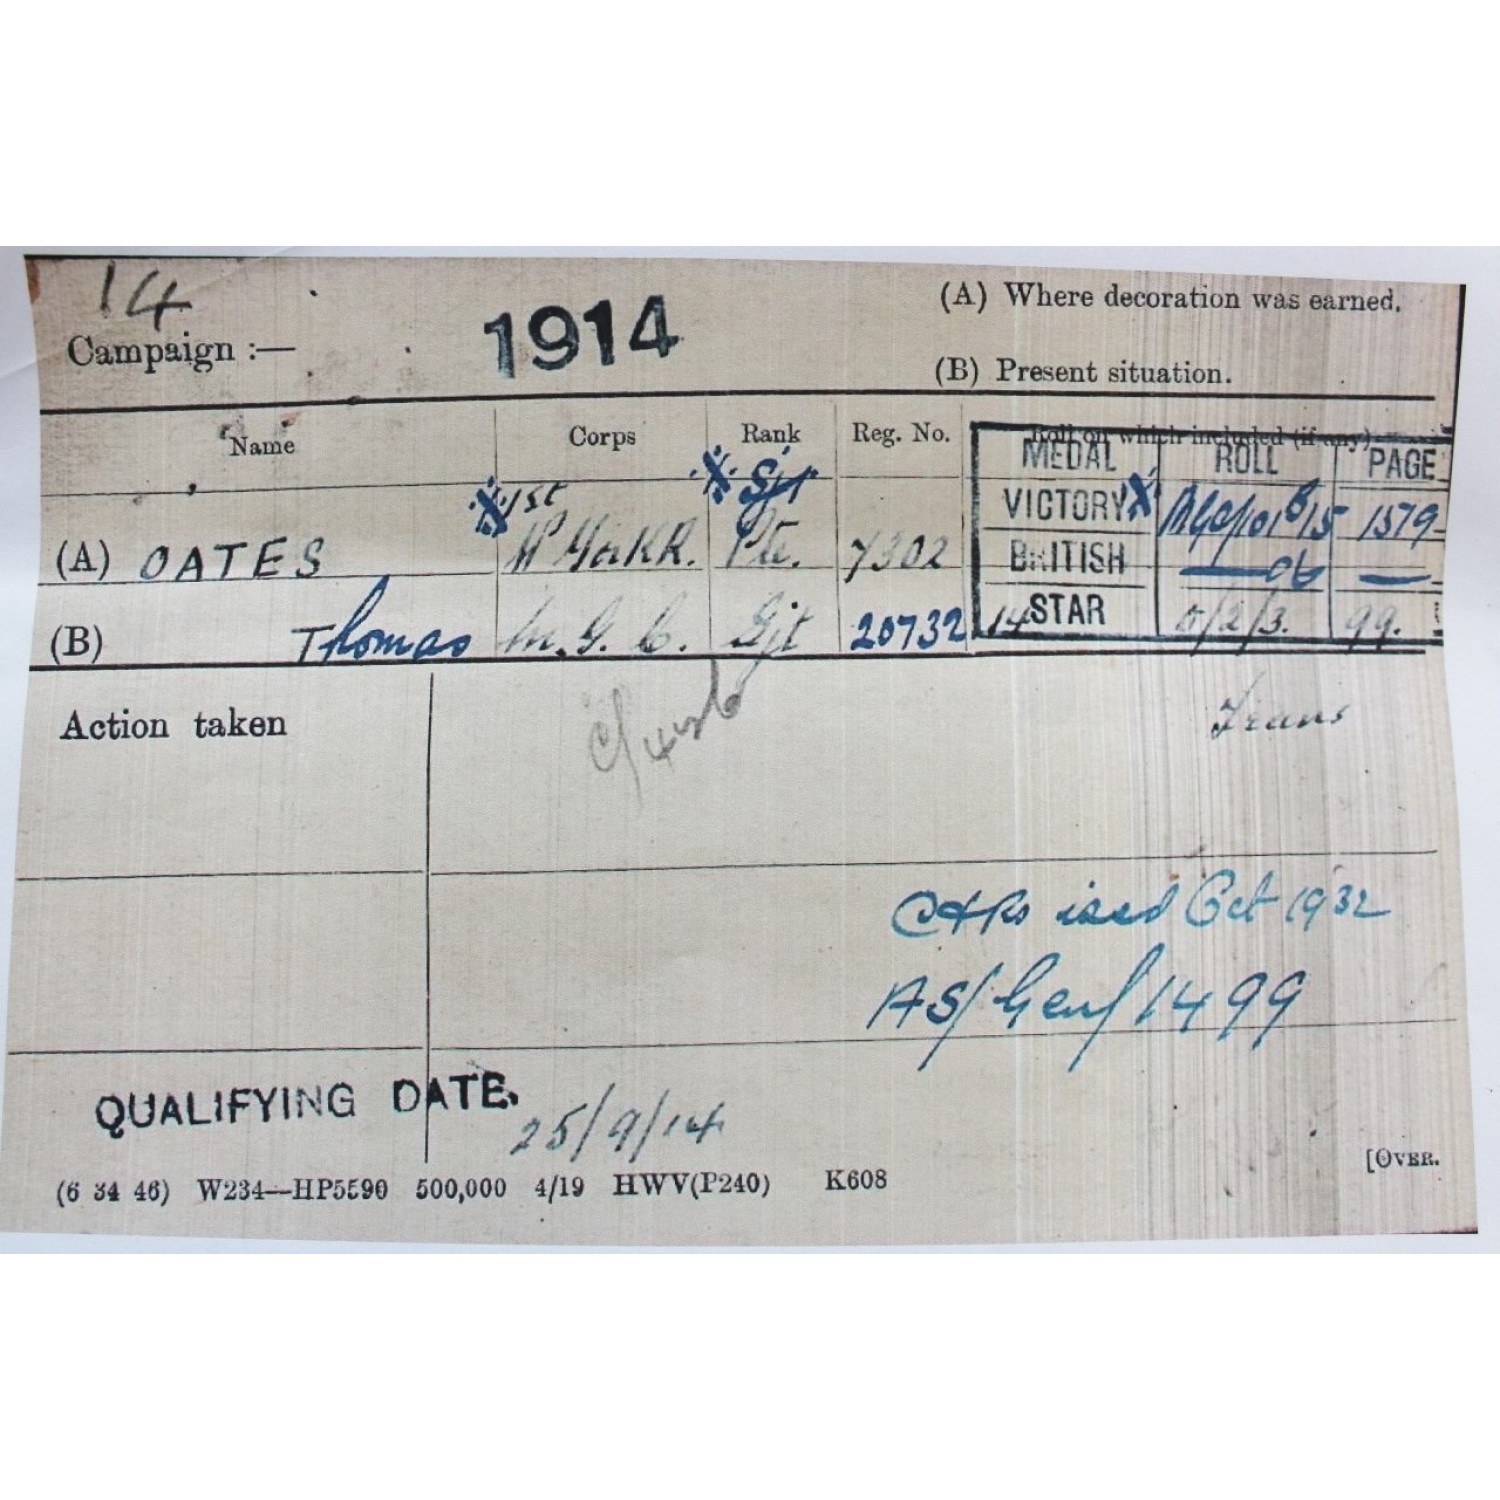 14
Campaign :—
1914
(A) Where decoration was earned.
(B) Present situation.
Name Corps Rank Reg. No. Roll on which included (if any)
MEDAL ROLL PAGE
X 1st X Sjt VICTORY X 1579
(A) OATES Pte. 7302 BRITISH
(B) Thomas M.G.C. Sjt 20732 14 STAR 0/2/3. 99.
Action taken
Trans
issd Oct 1932
AS/Gen/1499
QUALIFYING DATE.
25/9/14
(6 34 46) W234—HP5590 500,000 4/19 HWV(P240) K608
[OVER.